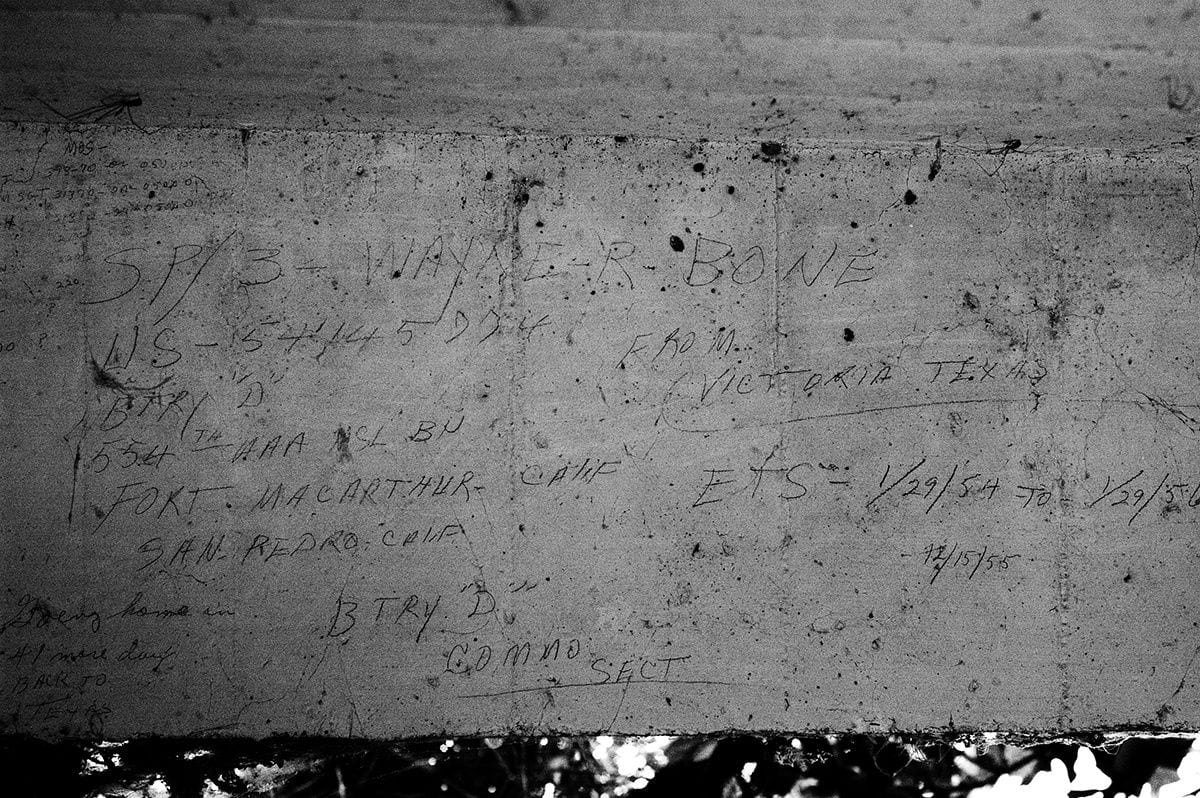 MOS-
SP/3 - WAYNE - R BONE
FROM
VICTORIA TEXAS
BTRY "D"
554 TH AAA MSL BN
FORT MACARTHUR - CALIF
ETS - 1/29/54 TO - 1/29/56
SAN - PEDRO - CALIF
12/15/55
Going home in
BTRY "D"
41 more day
COMMO
SECT
BACK TO
TEXAS